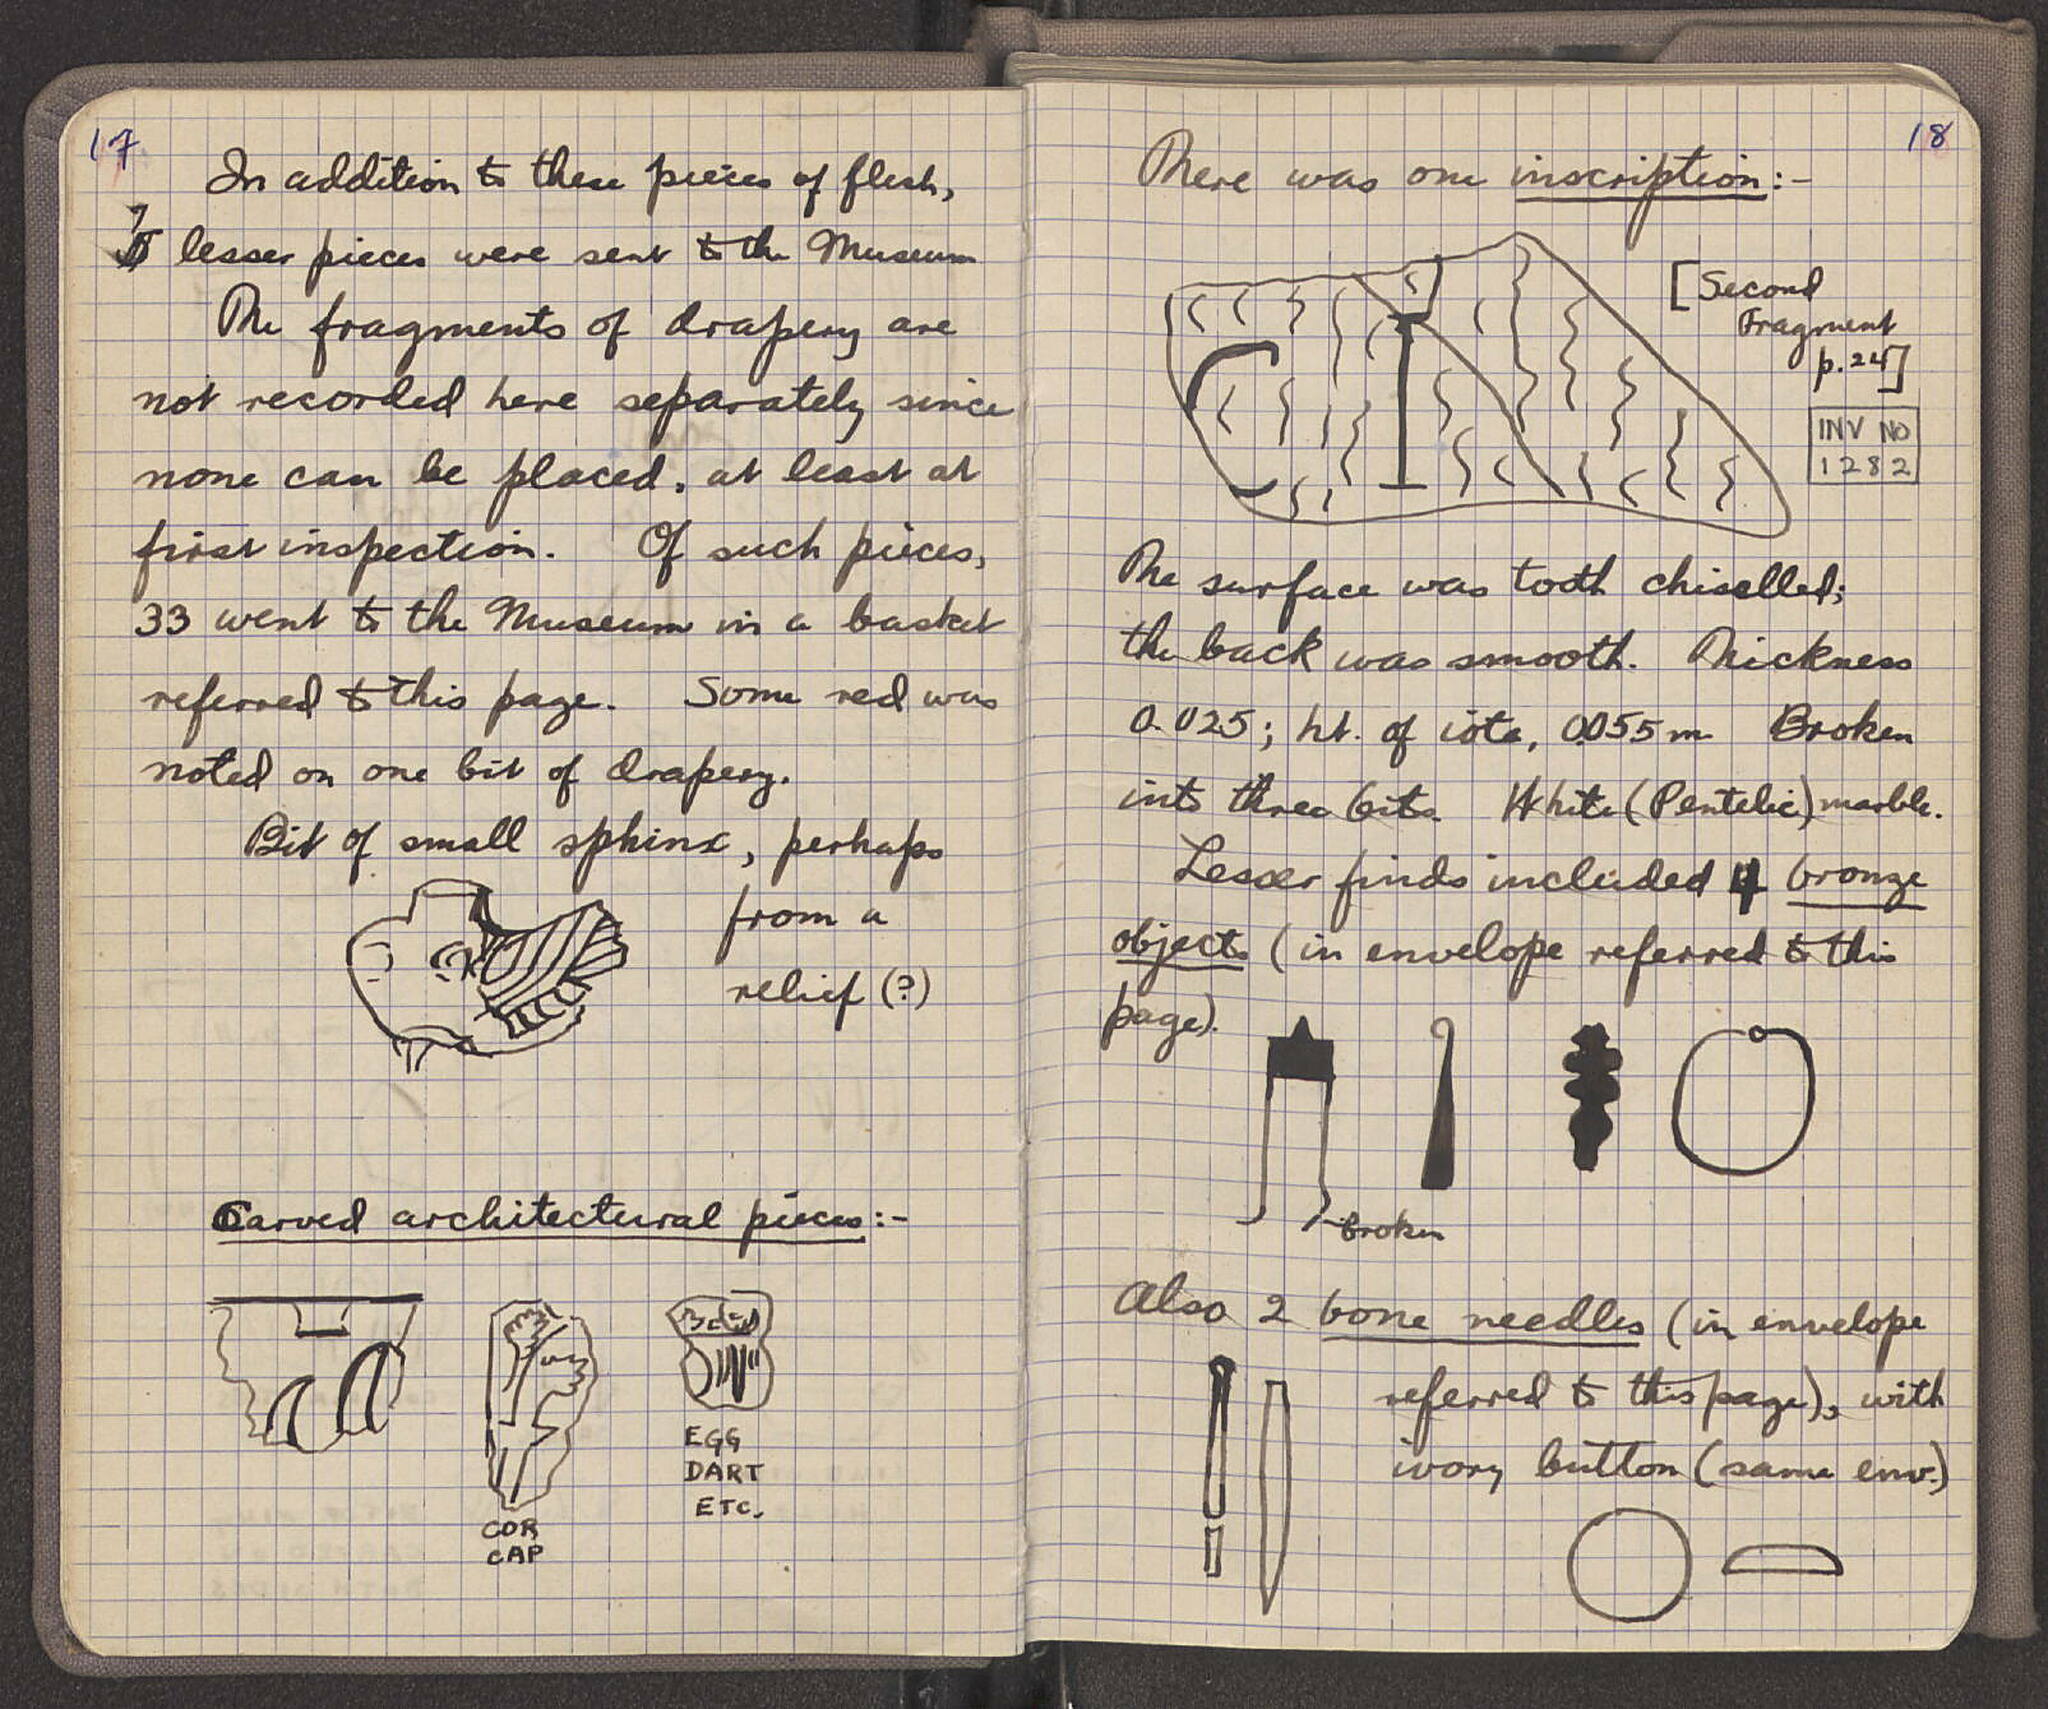 17
In addition to these pieces of flesh,
7 lesser pieces were sent to the Museum
The fragments of drapery are
not recorded here separately since
none can be placed, at least at
first inspection. Of such pieces,
33 went to the Museum in a basket
referred to this page. Some red was
noted on one bit of drapery.
Bit of small sphinx, perhaps
from a
relief (?)
Carved architectural pieces:-
COR
CAP
EGG
DART
ETC.
18
There was one inscription:-
[Second
Fragment
p.24]
INV NO
1282
The surface was tooth chiselled;
the back was smooth. Thickness
0.025; ht. of iota, 0.055 m Broken
into three bits. White (Pentelic) marble.
Lesser finds included 4 bronze
objects (in envelope referred to this
page).
broken
Also 2 bone needles (in envelope
referred to this page), with
ivory button (same env.)